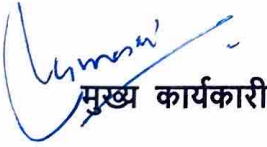 मुख्य कार्यकारी